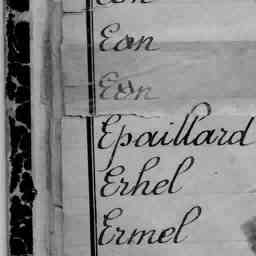 Eon
Eon
Eon
Epaillard
Erhel
Ermel